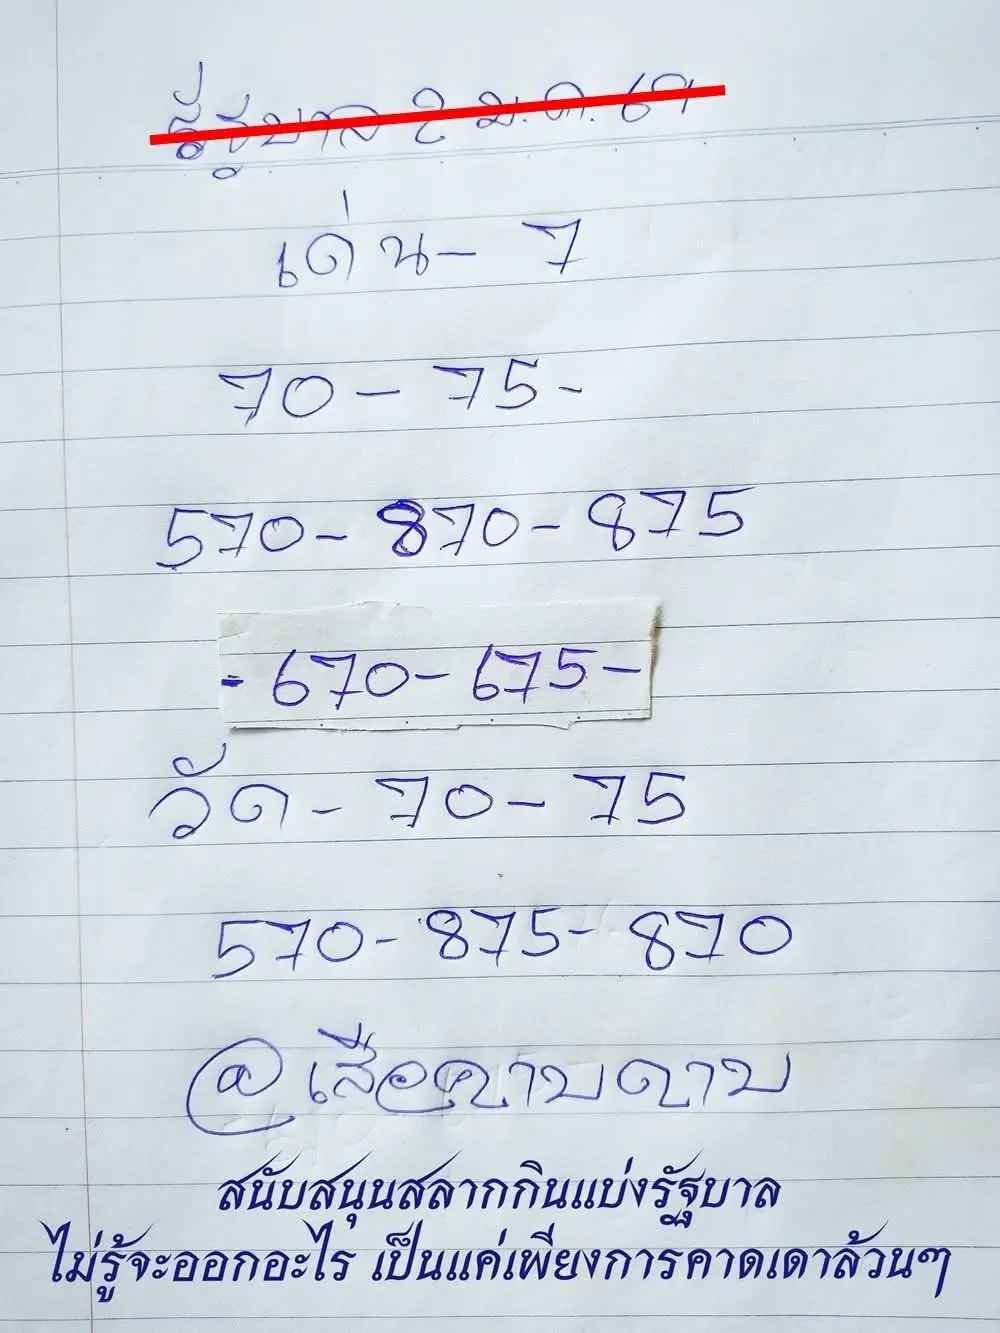 รัฐบาล 2 ม.ค. 69
เด่น - 7
70 - 75 -
570 - 870 - 875
- 670 - 675 -
วัด - 70 - 75
570 - 875 - 870
@เสือคาบดาบ
สนับสนุนสลากกินแบ่งรัฐบาล
ไม่รู้จะออกอะไร เป็นแค่เพียงการคาดเดาล้วนๆ